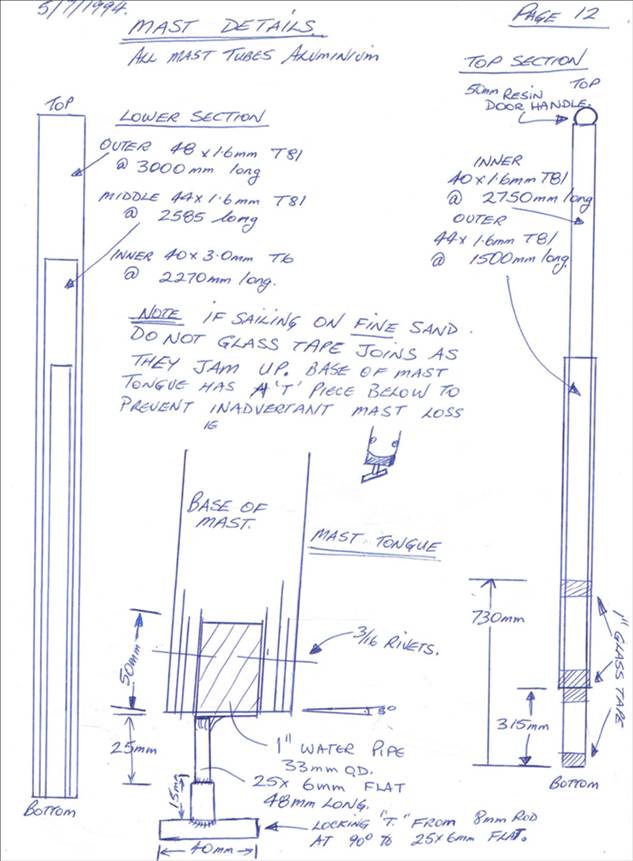 5/7/1994.
MAST DETAILS.
PAGE 12
ALL MAST TUBES ALUMINIUM
TOP
LOWER SECTION
OUTER 48 x 1.6mm T81
@ 3000mm long
MIDDLE 44 x 1.6mm T81
@ 2585 long
INNER 40 x 3.0mm T6
@ 2270mm long.
TOP SECTION
TOP
50mm RESIN
DOOR HANDLE.
INNER
40 x 1.6mm T81
@ 2750mm long
OUTER
44 x 1.6mm T81
@ 1500mm long.
NOTE IF SAILING ON FINE SAND.
DO NOT GLASS TAPE JOINS AS
THEY JAM UP. BASE OF MAST
TONGUE HAS A 'T' PIECE BELOW TO
PREVENT INADVERTANT MAST LOSS
IE
BASE OF
MAST.
MAST TONGUE
3/16 RIVETS.
50mm
3°
25mm
1" WATER PIPE
33mm O.D.
25 x 6mm FLAT
48mm LONG.
15mm
LOCKING "T." FROM 8mm ROD
AT 90° to 25x6mm FLAT.
40mm
730mm
1" GLASS TAPE
315mm
BOTTOM
BOTTOM